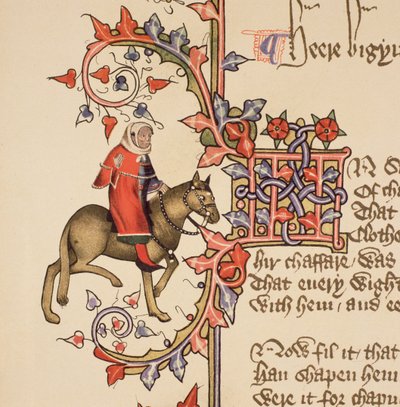 Heere bigyn
IN S
Of cha
That
Clothe
hir chaffare / was
That euery wight
With hem / and ee
Now fil it / that
Han shapen hem
Were it for chapm